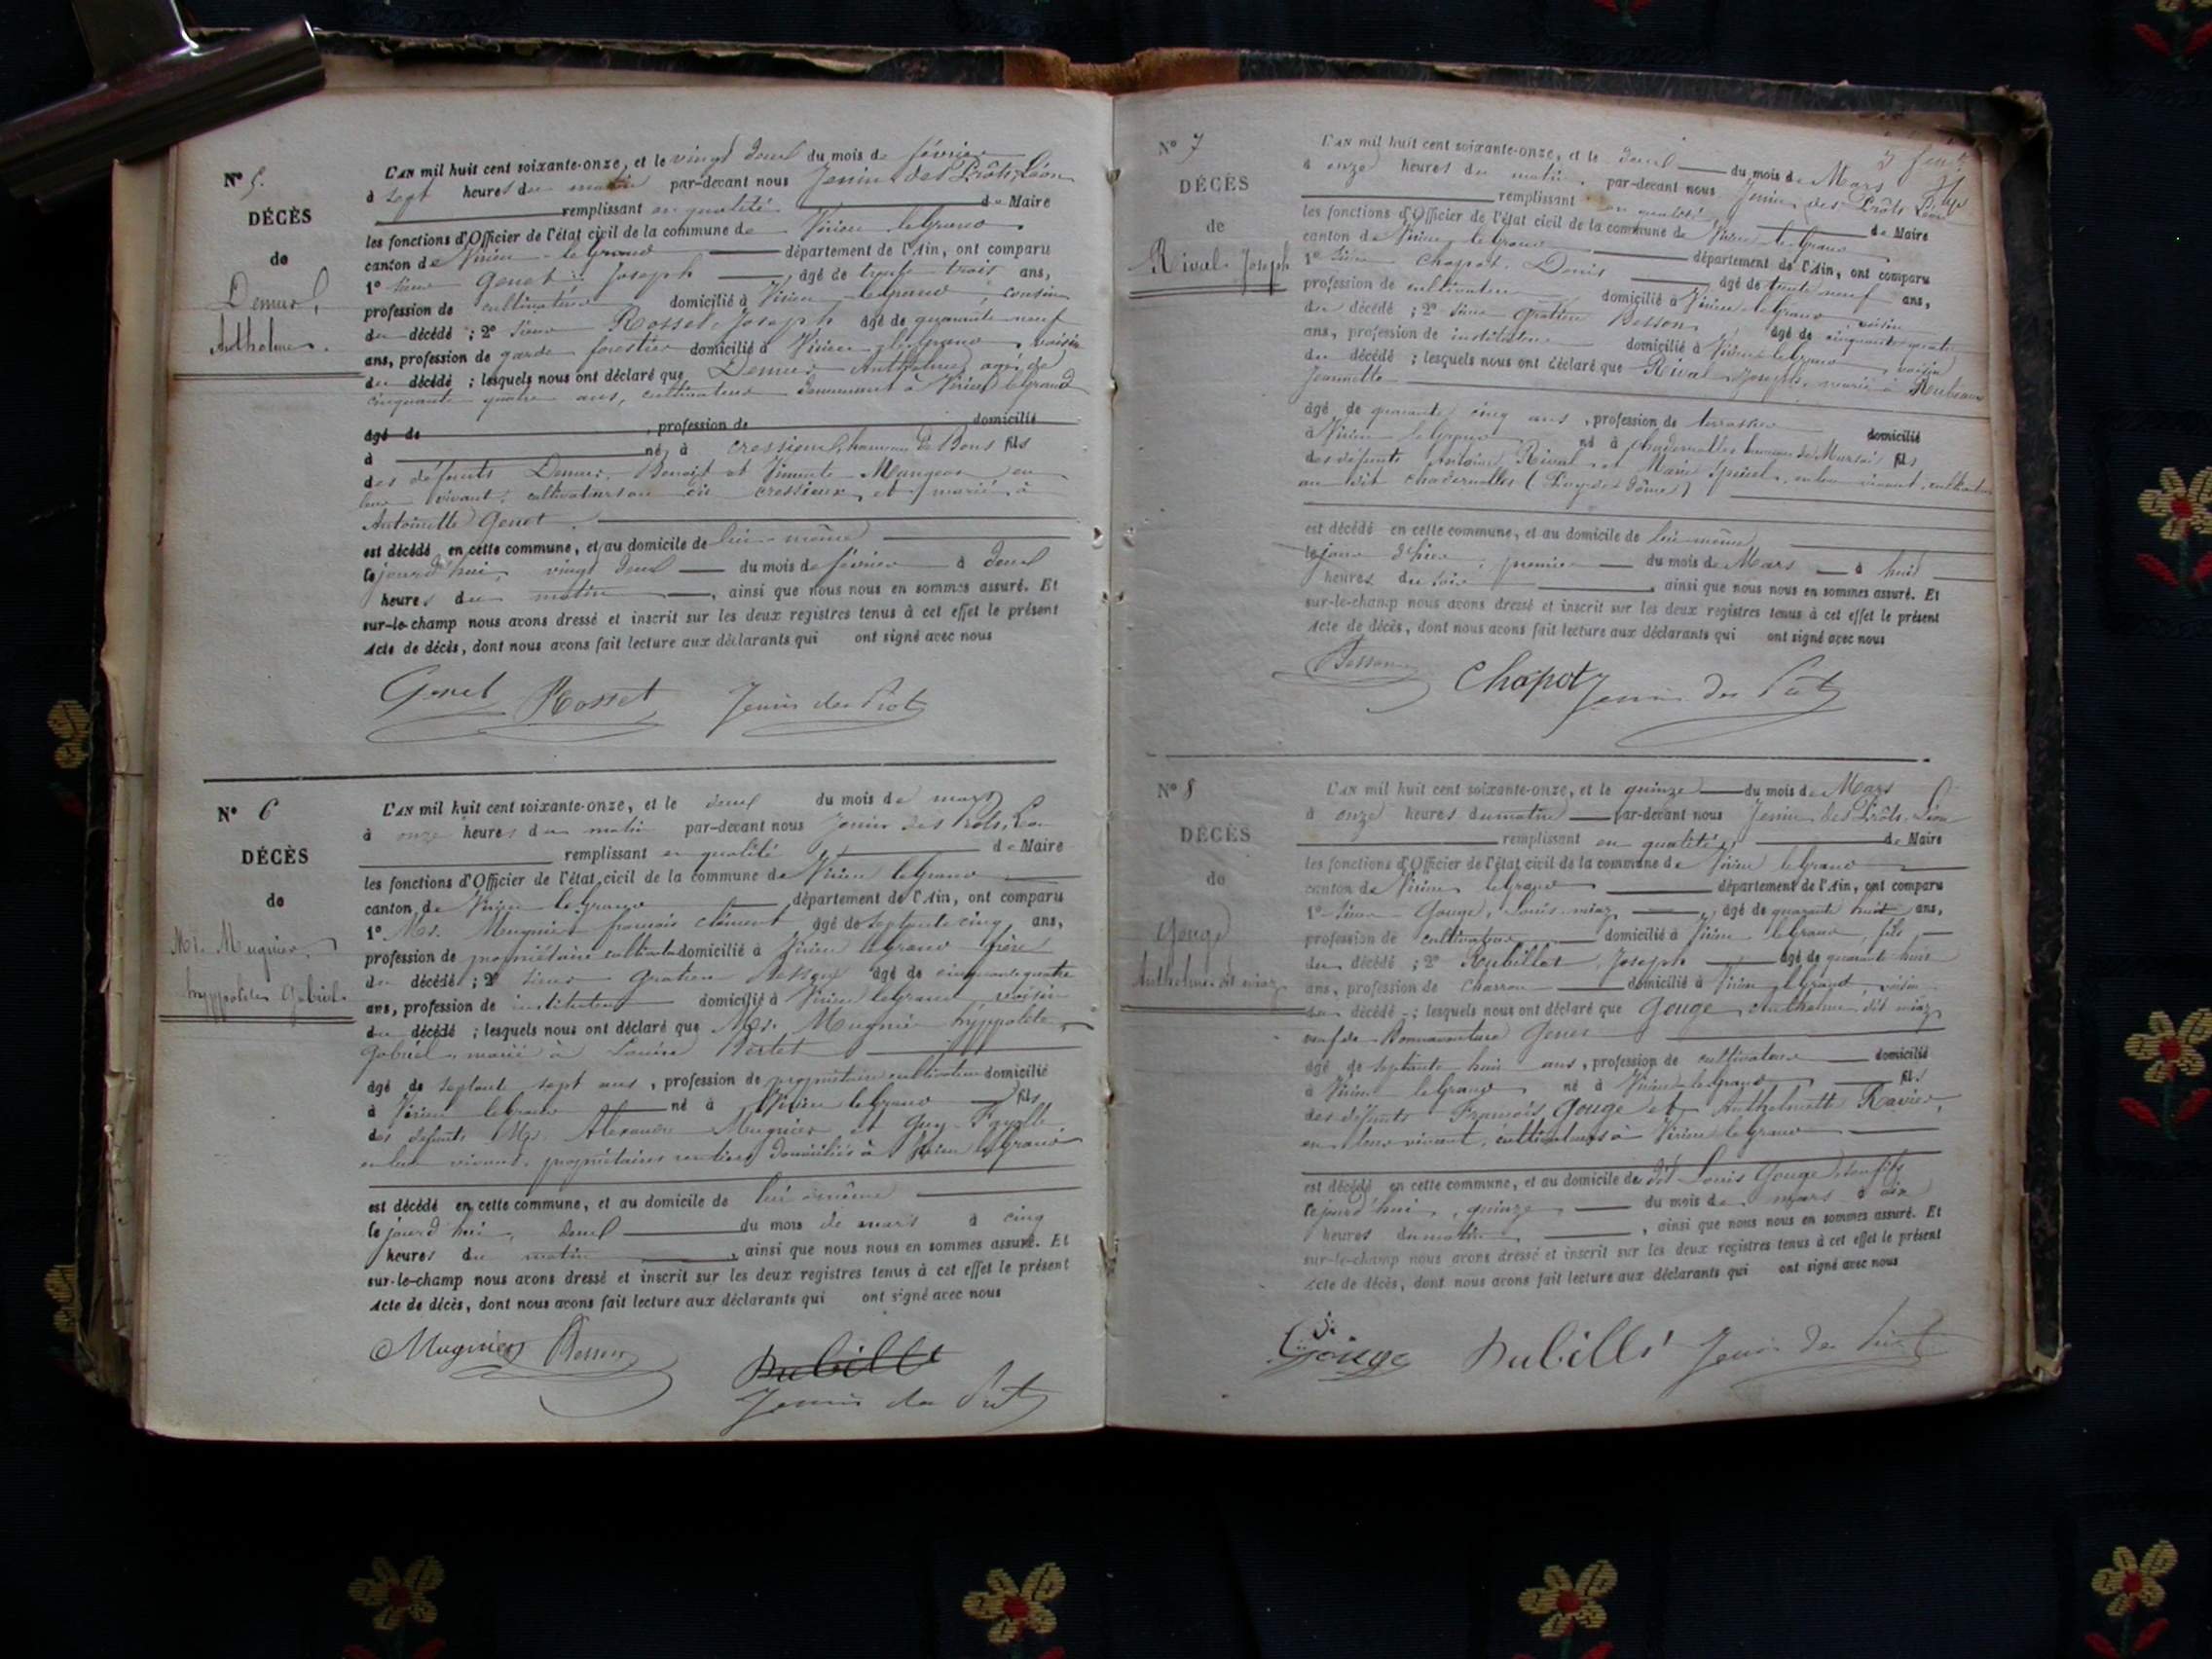 N° 5.
DÉCÈS
de
Demur,
Anthelme.
L'AN mil huit cent soixante-onze, et le vingt deux du mois de février
à sept heures du matin par-devant nous Jenin des Prôts, Léon
remplissant en qualité de Maire
les fonctions d'Officier de l'état civil de la commune de Virieu le Grand
canton de Virieu le Grand département de l'Ain, ont comparu
1° Sieur Genet, Joseph, âgé de trente trois ans,
profession de cultivateur domicilié à Virieu legrand, cousin
du décédé ; 2° Sieur Rosset Joseph âgé de quarante neuf
ans, profession de garde forestier domicilié à Virieu legrand, voisin
du décédé ; lesquels nous ont déclaré que Demur Anthelme, agé de
cinquante quatre ans, cultivateur demeurant à Virieu le grand
âgé de , profession de domicilié
à né à cressieux, hameau de Bons fils
des défunts Demur, Benoit et Mangeon en
leur vivant, cultivateurs au dit cressieux, et marié à
Antoinette Genet.
est décédé en cette commune, et au domicile de lui-même
le jourd'hui, vingt deux du mois de février à deux
heures du matin, ainsi que nous nous en sommes assuré. Et
sur-le-champ nous avons dressé et inscrit sur les deux registres tenus à cet effet le présent
Acte de décès, dont nous avons fait lecture aux déclarants qui ont signé avec nous
Genet Rosset Jenin des Prots
N° 6
DÉCÈS
de
Mr. Mugnier,
hyppolite Gabriel.
L'AN mil huit cent soixante-onze, et le deux du mois de mars
à onze heures du matin par-devant nous Jenin des Prôts, Léon
remplissant en qualité de Maire
les fonctions d'Officier de l'état civil de la commune de Virieu le Grand
canton de Virieu le grand, département de l'Ain, ont comparu
1° Mr. Mugnier françois clément âgé de septante cinq ans,
profession de propriétaire cultivateur domicilié à Virieu le grand frère
du décédé ; 2° Sieur Gratien Besson âgé de cinquante quatre
ans, profession de instituteur domicilié à Virieu legrand, voisin
du décédé ; lesquels nous ont déclaré que Mr. Mugnier hyppolite,
Gabriel, marié à Louise Bertet
âgé de septante sept ans, profession de propriétaire cultivateur domicilié
à Virieu le grand né à Virieu le Grand fils
des défunts Mr. Alexandre Mugnier et Guy
en leur vivant, propriétaires rentiers domiciliés à Virieu le grand
est décédé en cette commune, et au domicile de lui même
le jourd'hui, deux du mois de mars à cinq
heures du matin, ainsi que nous nous en sommes assuré. Et
sur-le-champ nous avons dressé et inscrit sur les deux registres tenus à cet effet le présent
Acte de décès, dont nous avons fait lecture aux déclarants qui ont signé avec nous
Mugnier Besson
Rubille
Jenin des Prots
N° 7
DÉCÈS
de
Rival Joseph
L'AN mil huit cent soixante-onze, et le deux du mois de Mars
à onze heures du matin, par-devant nous Jenin des Prôts Léon
remplissant en qualité de Maire
les fonctions d'Officier de l'état civil de la commune de Virieu le Grand
canton de Virieu le grand département de l'Ain, ont comparu
1° Sieur Chapot, Denis âgé de trente neuf ans,
profession de cultivateur domicilié à Virieu le grand voisin
du décédé ; 2° Sieur Gratien Besson, âgé de cinquante quatre
ans, profession de instituteur domicilié à Virieu le grand, voisin
du décédé ; lesquels nous ont déclaré que Rival Joseph, marié à
Jeannette
âgé de quarante cinq ans, profession de terrassier domicilié
à Virieu le grand né à chadernolles hameau de fils
des défunts Antoine Rival et Marie en leur vivant, cultivateurs
au dit chadernolles (Puy de dôme)
est décédé en cette commune, et au domicile de lui même
le jour d'hier, premier du mois de Mars à huit
heures du soir, ainsi que nous nous en sommes assuré. Et
sur-le-champ nous avons dressé et inscrit sur les deux registres tenus à cet effet le présent
Acte de décès, dont nous avons fait lecture aux déclarants qui ont signé avec nous
Besson Chapot Jenin des Prots
N° 8
DÉCÈS
de
Gouge
Anthelme dit miaz
L'AN mil huit cent soixante-onze, et le quinze du mois de Mars
à onze heures du matin par-devant nous Jenin des Prôts, Léon
remplissant en qualité de Maire
les fonctions d'Officier de l'état civil de la commune de Virieu le Grand
canton de Virieu le grand département de l'Ain, ont comparu
1° Sieur Gouge, Louis miaz, âgé de quarante huit ans,
profession de cultivateur domicilié à Virieu le grand, fils
du décédé ; 2° Rubillet, Joseph âgé de quarante huit
ans, profession de charron domicilié à Virieu le grand, voisin
du décédé ; lesquels nous ont déclaré que Gouge Anthelme dit miaz
veuf de Bonnaventure Genet
âgé de septante huit ans, profession de cultivateur domicilié
à Virieu le grand né à Virieu le grand fils
des défunts François Gouge et Anthelmette Ravier,
en leur vivant, cultivateurs à Virieu le grand
est décédé en cette commune, et au domicile de dit Louis Gouge, son fils
le jourd'hui, quinze du mois de mars à dix
heures du matin, ainsi que nous nous en sommes assuré. Et
sur-le-champ nous avons dressé et inscrit sur les deux registres tenus à cet effet le présent
Acte de décès, dont nous avons fait lecture aux déclarants qui ont signé avec nous
Gouge Rubille Jenin des Prots